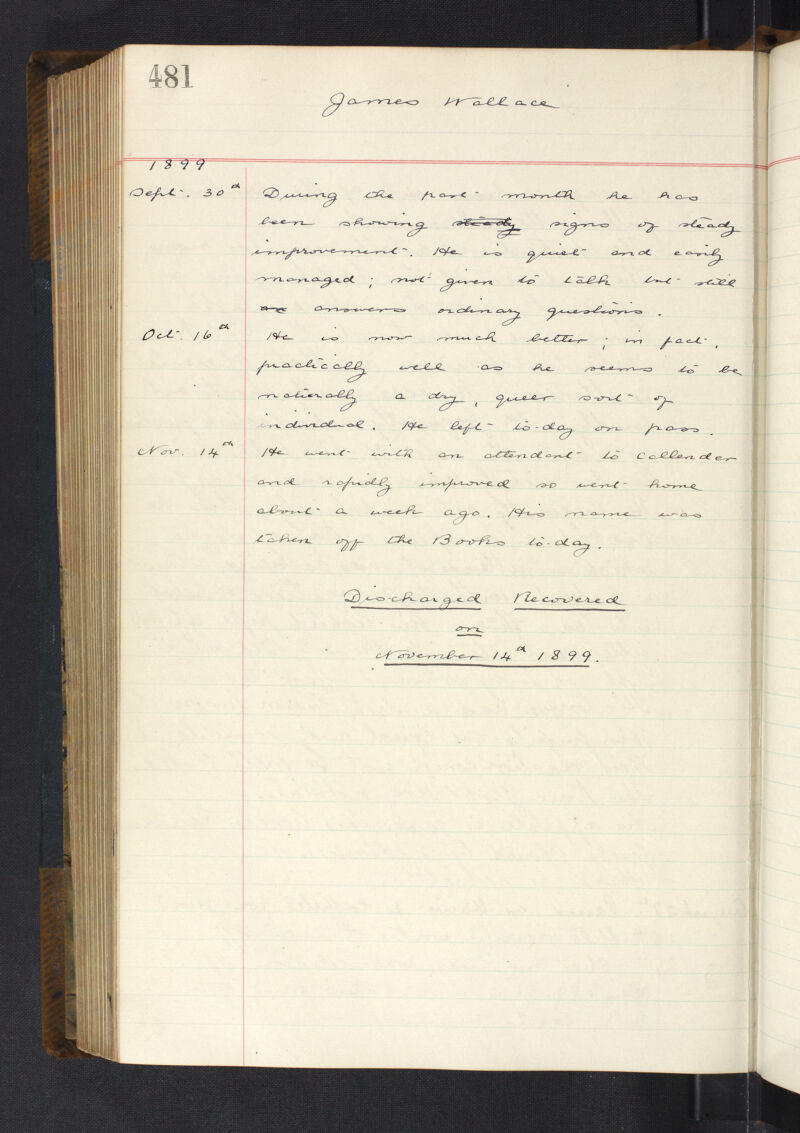 481
James Wallace
1899
Sept. 30th During the past month he has
been showing steady signs of steady
improvement. He is quiet and easily
managed; not given to talk but still
as answers ordinary questions.
Oct. 16th He is now much better; in fact,
practically well as he seems to be
naturally a dry, queer sort of
individual. He left to-day on pass.
Nov. 14th He went with an attendant to Callender
and rapidly improved so went home
about a week ago. His name was
taken off the Books to-day.
Discharged Recovered
on
November 14th 1899.